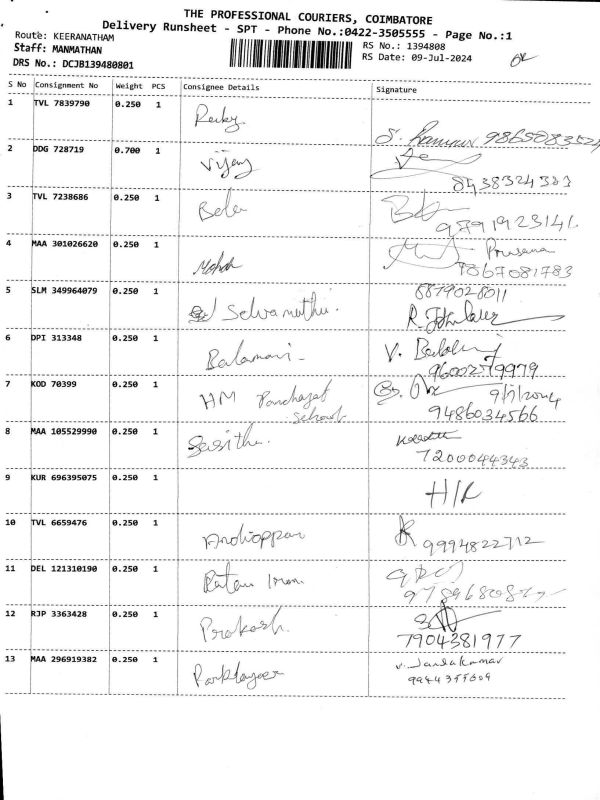 THE PROFESSIONAL COURIERS, COIMBATORE
Delivery Runsheet - SPT - Phone No.:0422-3505555 - Page No.:1
Route: KEERANATHAM
RS No.: 1394808
Staff: MANMATHAN
RS Date: 09-Jul-2024
DRS No.: DCJB139480801
S No Consignment No Weight PCS Consignee Details Signature
1 TVL 7839790 0.250 1
9865083524
2 DDG 728719 0.700 1 Vijay
8438324383
3 TVL 7238686 0.250 1
9791923141
4 MAA 301026620 0.250 1 Mohan Prasana
7867081783
5 SLM 349964079 0.250 1 Selvamuthu.
8879028011
6 DPI 313348 0.250 1 Balamani-
9600279979
7 KOD 70399 0.250 1 HM Panchayat School 9/7/2024
9486034566
8 MAA 105529990 0.250 1 Sasithu.
7200044343
9 KUR 696395075 0.250 1
10 TVL 6659476 0.250 1 Andiappan 9994822712
11 DEL 121310190 0.250 1
12 RJP 3363428 0.250 1 Prakash.
7904381977
13 MAA 296919382 0.250 1 V. Nandakumar
9944355609